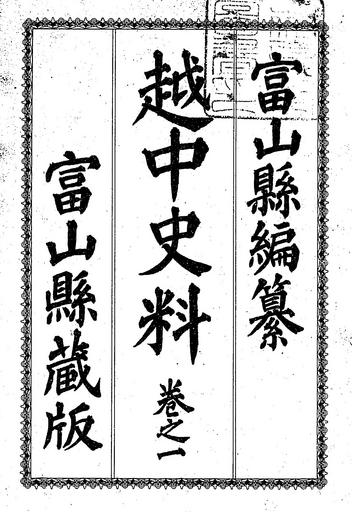 富山縣編纂
越中史料 卷之一
富山縣藏版